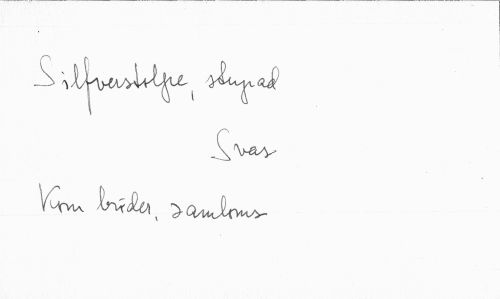 Silfverstolpe, stupad
Svas
Kom bröder, samloms